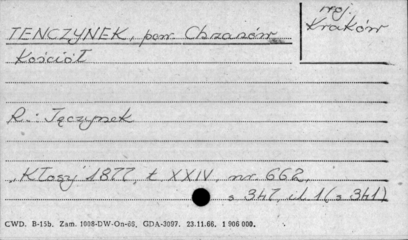 woj.
Kraków
TENCZYNEK, pow. Chrzanów
Kościół
R.: Tęczynek
„Kłosy" 1877, t XXIV, nr. 662,
s 347, il. 1 (s 341)
CWD. B-15b. Zam. 1008-DW-On-66, GDA-3097. 23.11.66. 1 906 000.